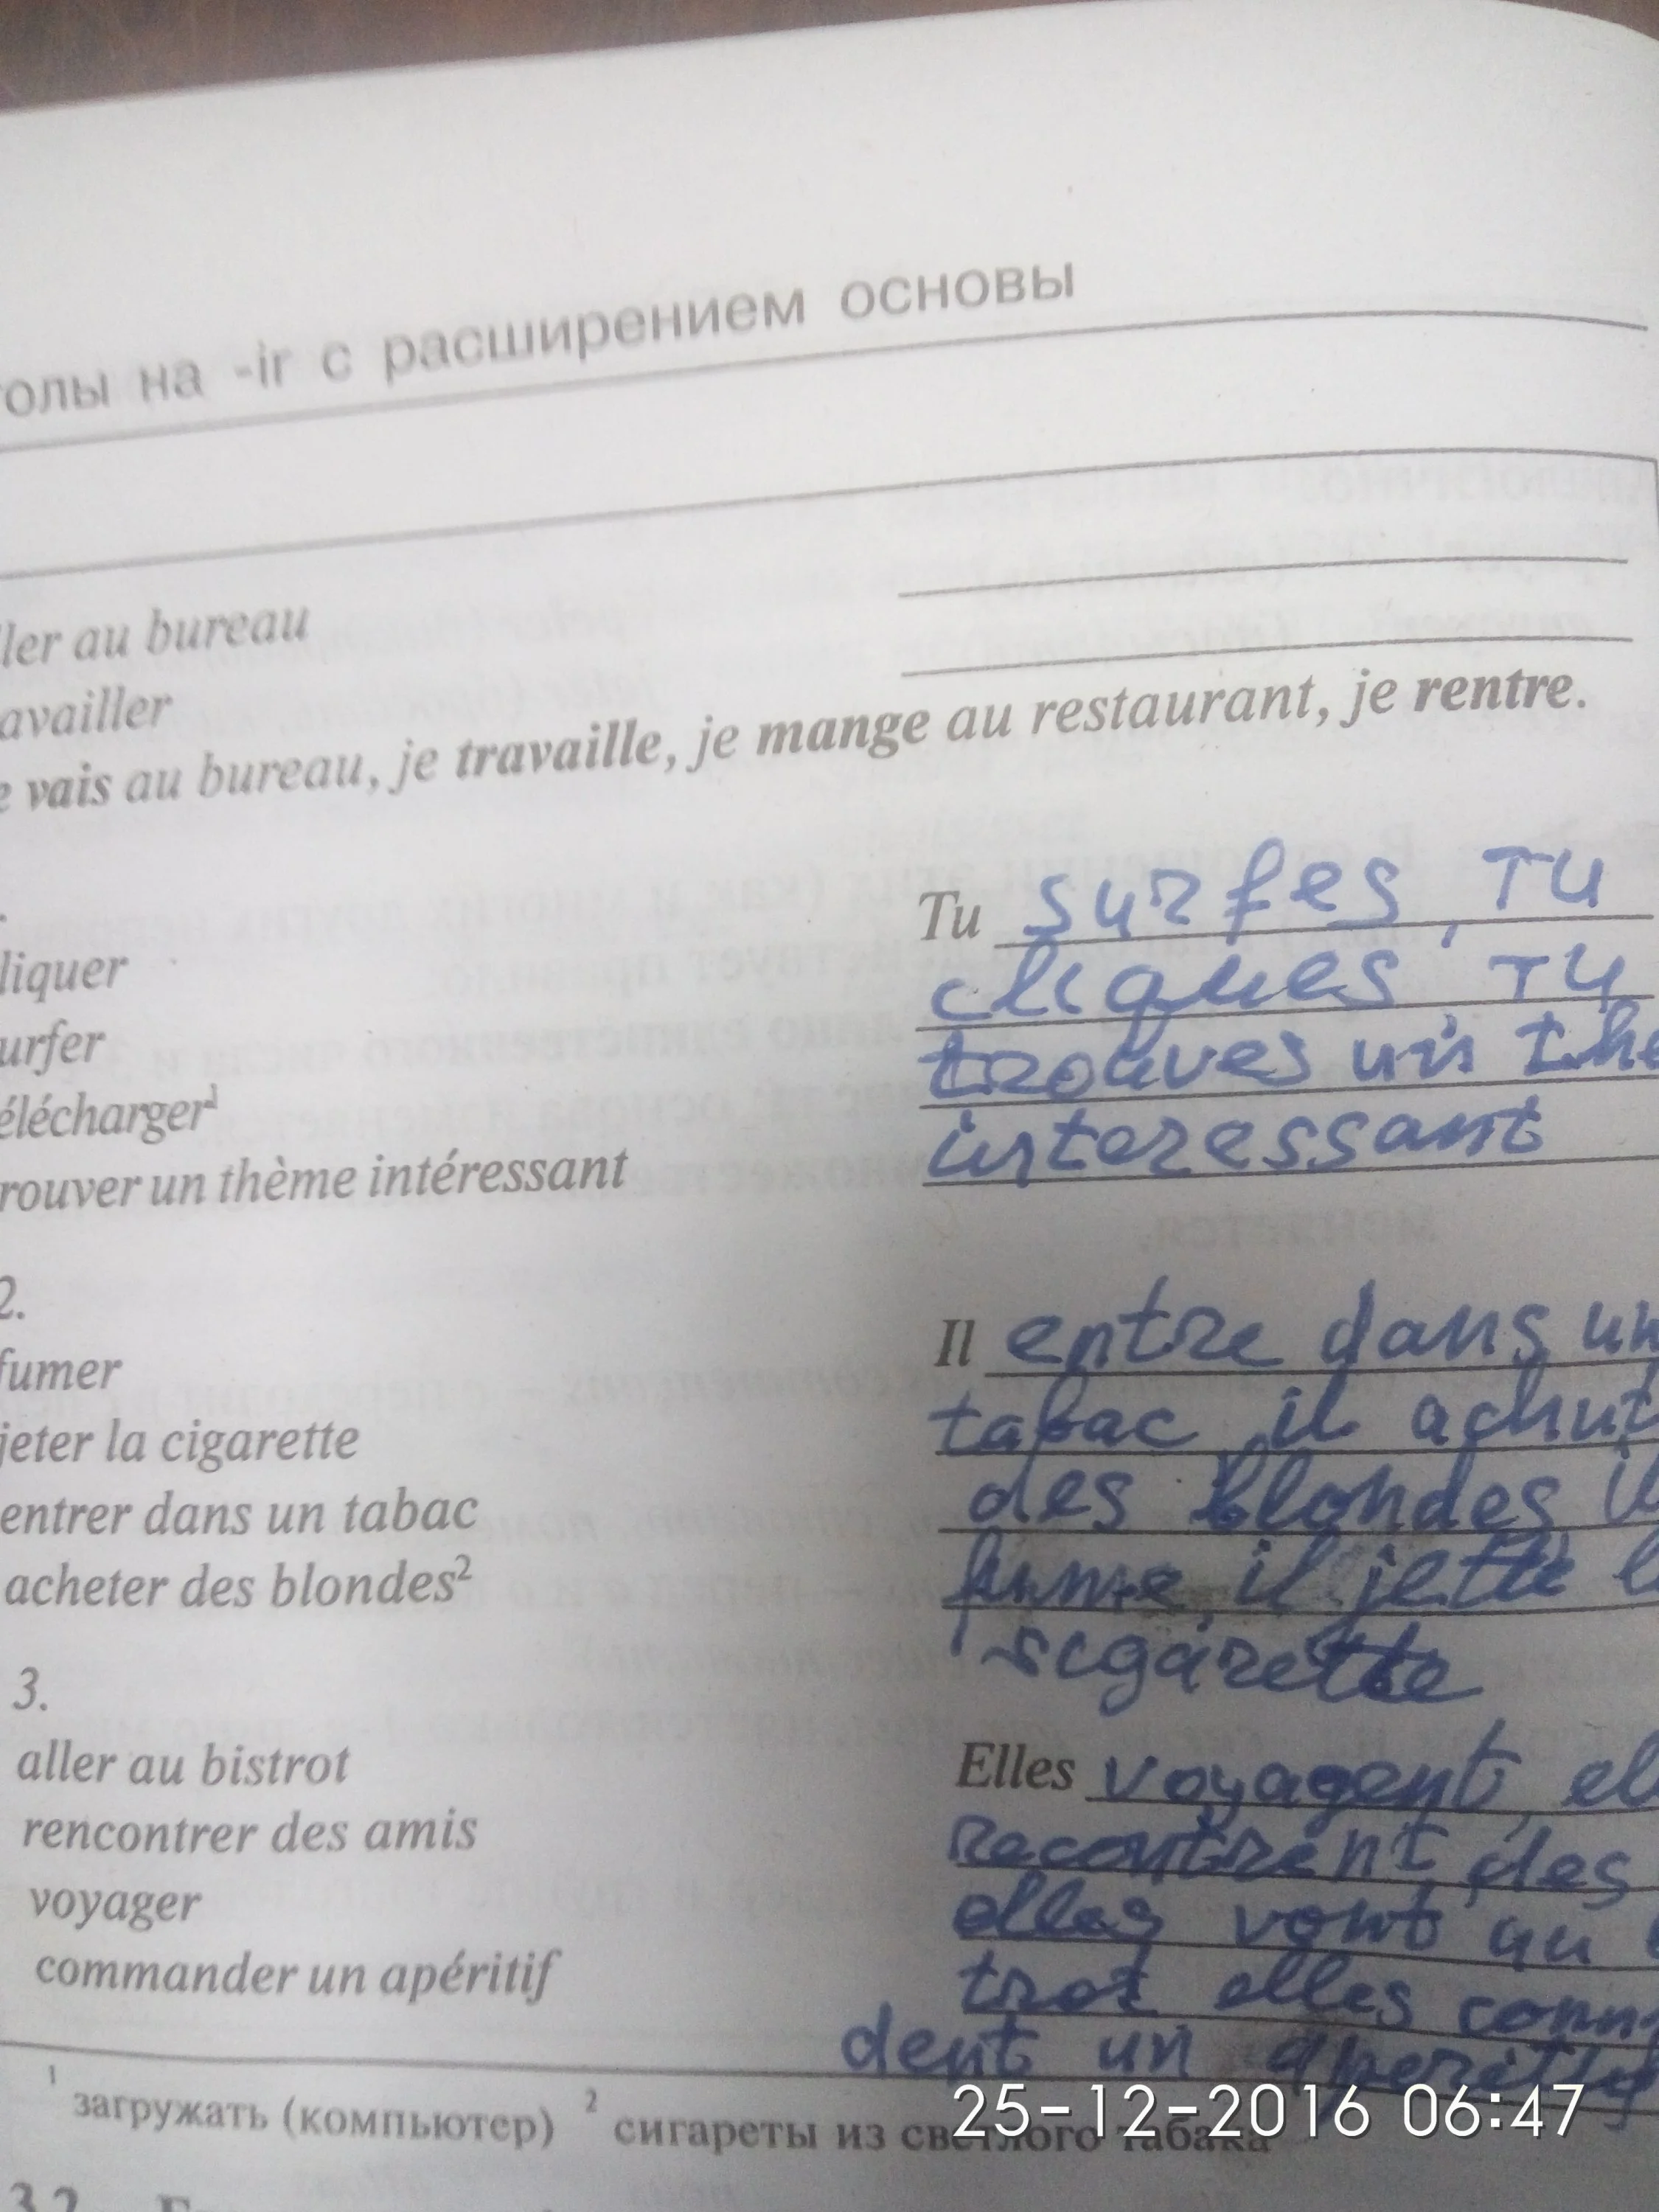 олы на -ir с расширением основы
ler au bureau
availler
e vais au bureau, je travaille, je mange au restaurant, je rentre.
.
liquer
urfer
élécharger¹
rouver un thème intéressant
Tu surfes, tu
cliques tu
trouves un the
interessant
2.
fumer
jeter la cigarette
entrer dans un tabac
acheter des blondes²
Il entre dans un
tabac, il
des blondes il
fume, il jette l
sigarette
3.
aller au bistrot
rencontrer des amis
voyager
commander un apéritif
Elles voyagent, el
recontrent des
elles vont au
trot elles comm
dent un
¹ загружать (компьютер) ² сигареты из светлого табака
25-12-2016 06:47